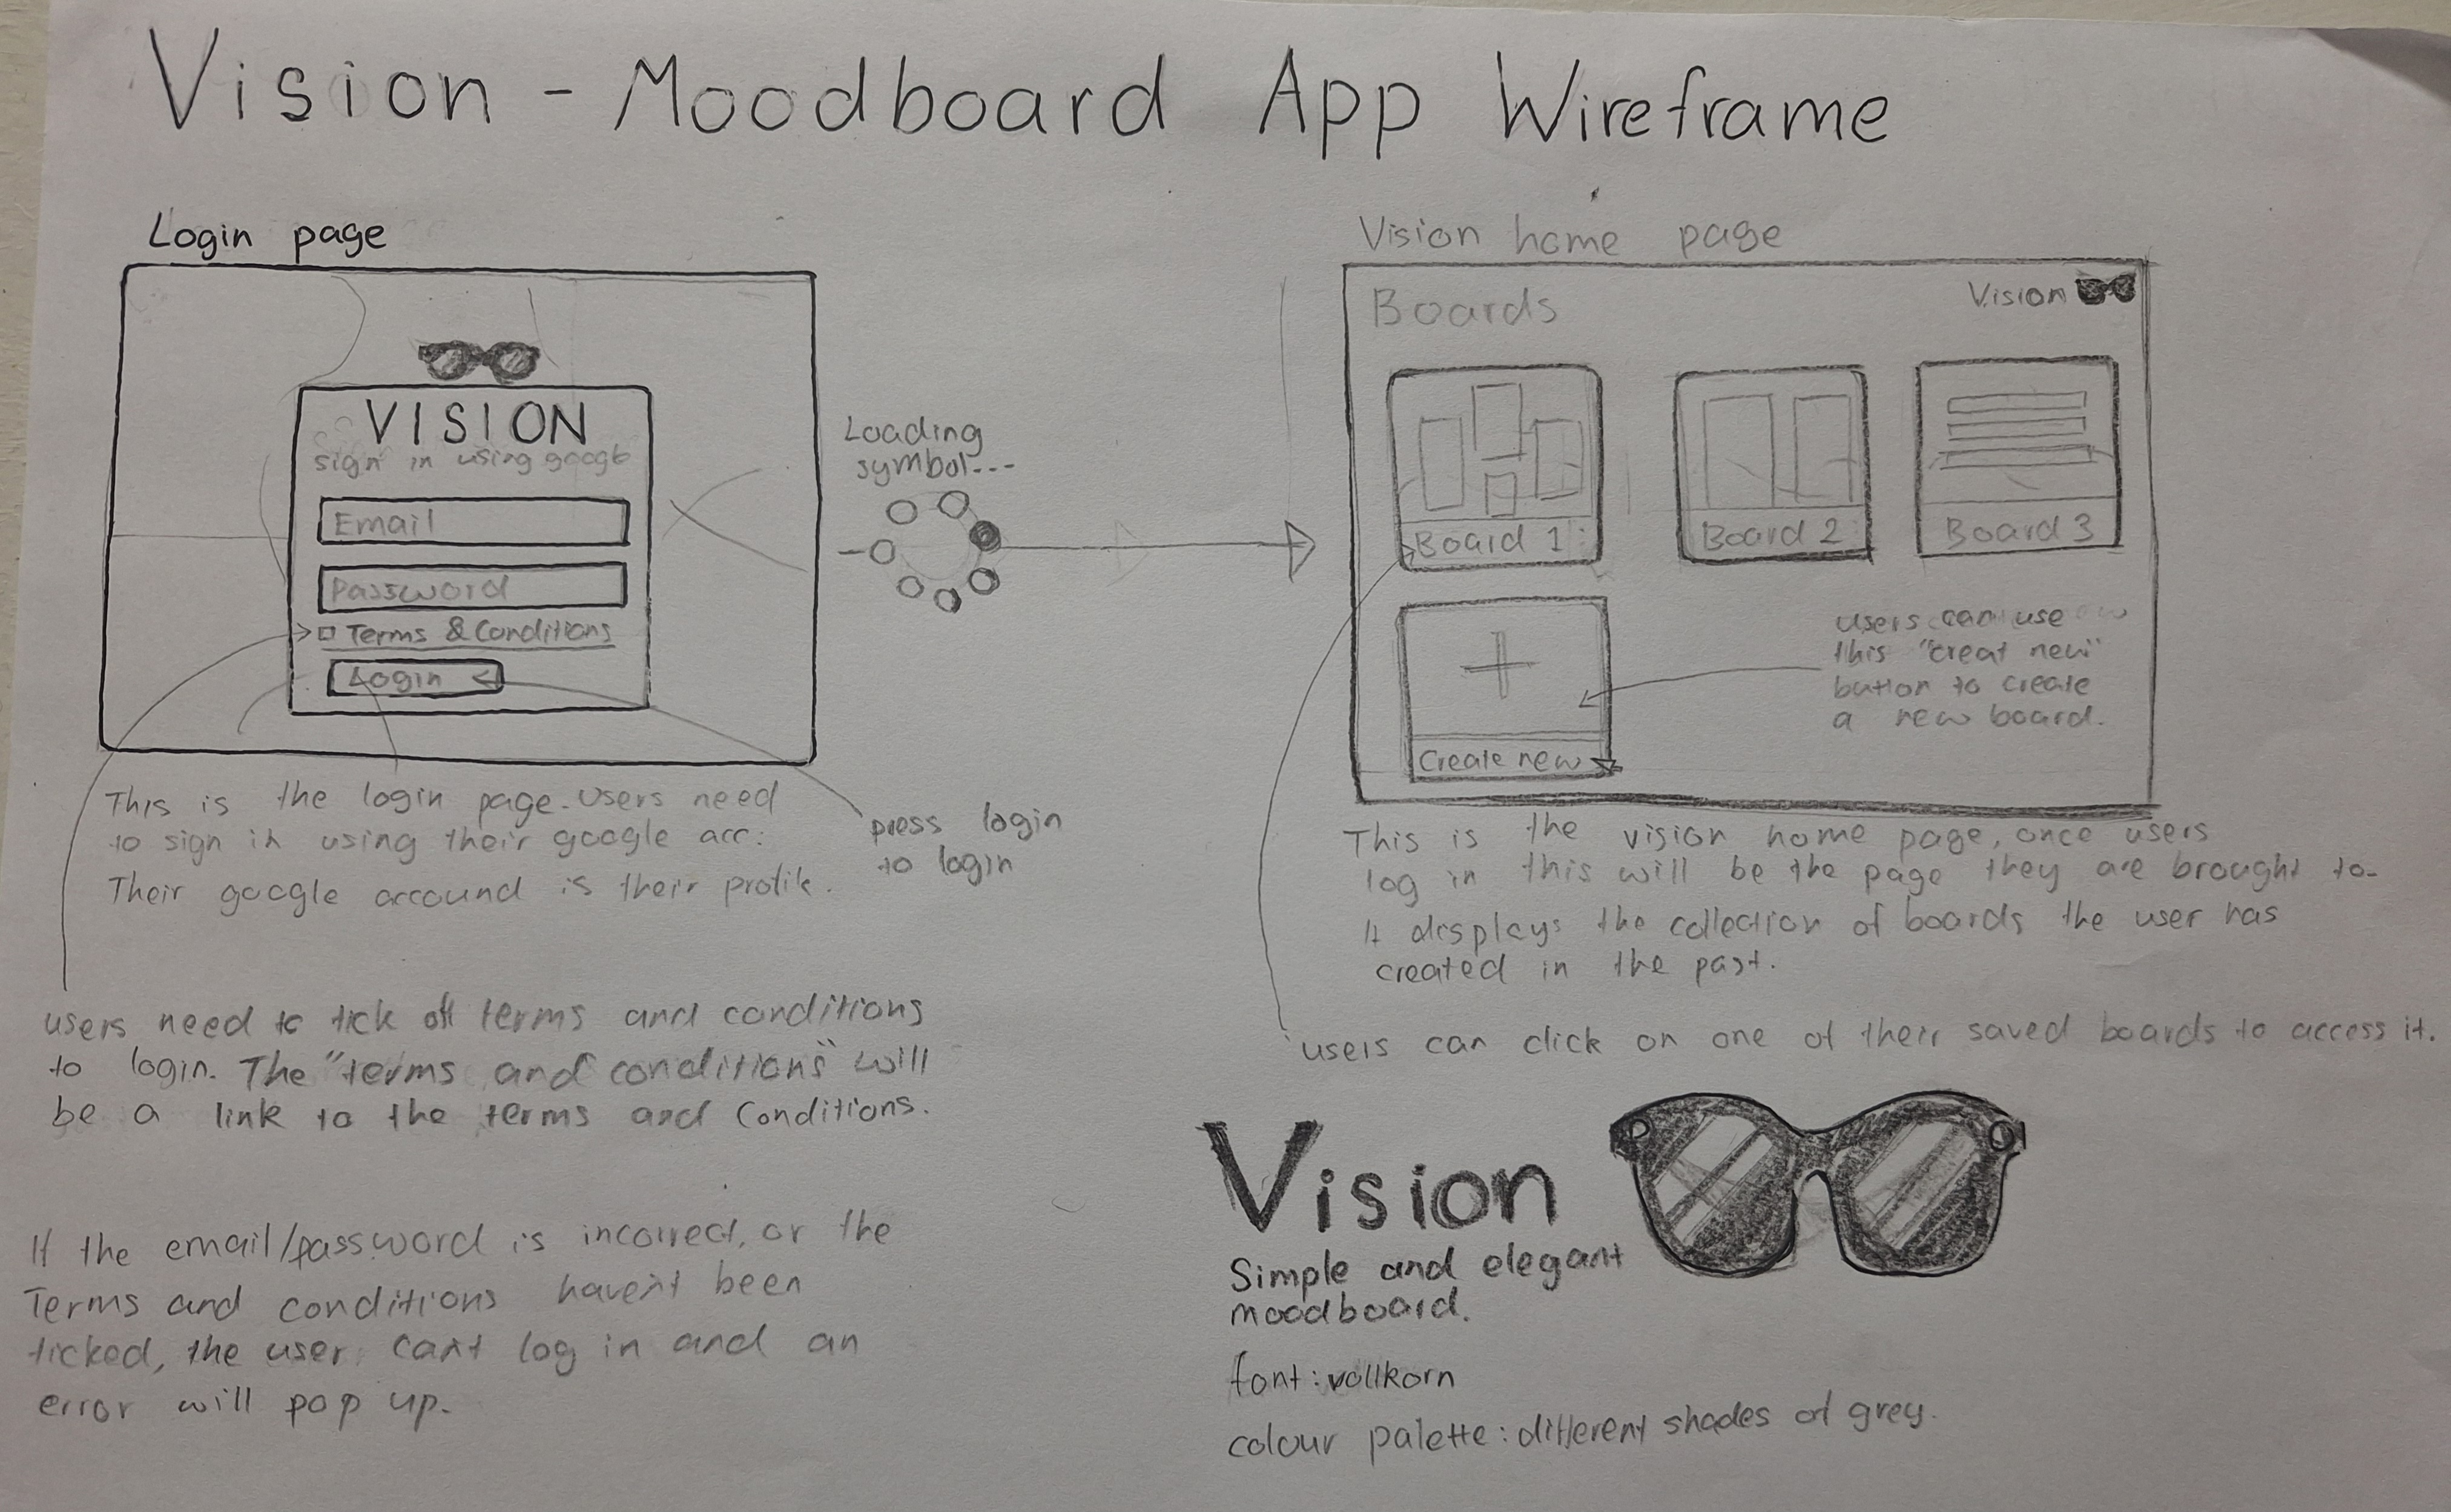 Vision - Moodboard App Wireframe
Login page
VISION
sign in using google
Email
Password
Terms & Conditions
Login
This is the login page. Users need
to sign in using their google acc.
Their google accound is their profile.
press login
to login
users need to tick off terms and conditions
to login. The "terms and conditions" will
be a link to the terms and conditions.
If the email/password is incorrect, or the
Terms and conditions haven't been
ticked, the user can't log in and an
error will pop up.
Loading
symbol---
Vision home page
Boards
Vision
Board 1
Board 2
Board 3
Create new
users can use
this "creat new"
button to create
a new board.
This is the vision home page, once users
log in this will be the page they are brought to.
It displays the collection of boards the user has
created in the past.
users can click on one of their saved boards to access it.
Vision
Simple and elegant
moodboard.
font: vollkorn
colour palette: different shades of grey.